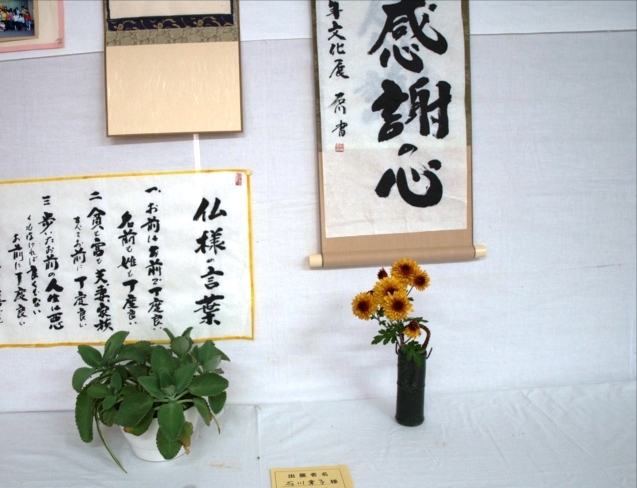 感謝心
年文化展
仏様の言葉
一、お前はお前で丁度良い
名前も姓も丁度良い
二、貧も富も父母家族
すべてお前に丁度良い
三、歩いたお前の人生は悪
くもなければ良くもない
お前に丁度良い
出展者名
石川
様